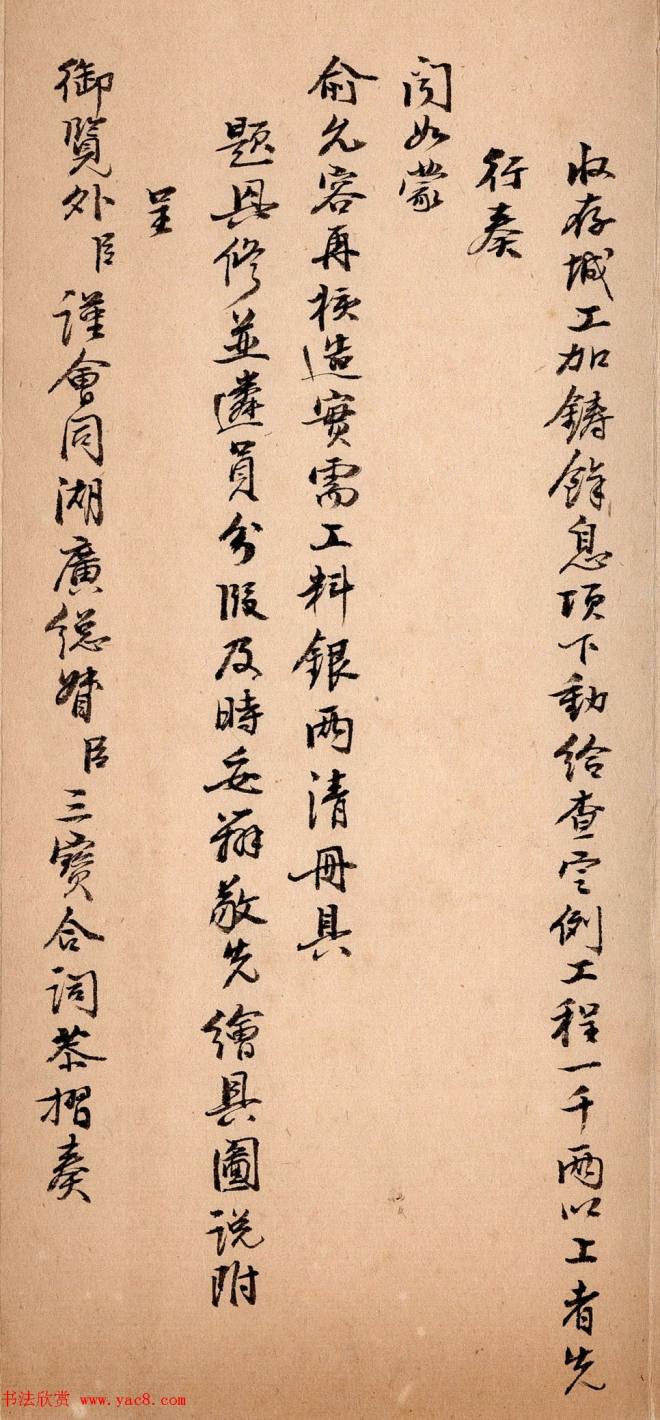 收存城工加鑄餘息項下動給查定例工程一千兩以上者先
行奏
聞如蒙
俞允容再核造實需工料銀兩清冊具
題興修並遴員分段及時妥辦敬先繪具圖說附
呈
御覽外臣謹會同湖廣總督臣三寶合詞恭摺奏
书法欣赏 www.yac8.com